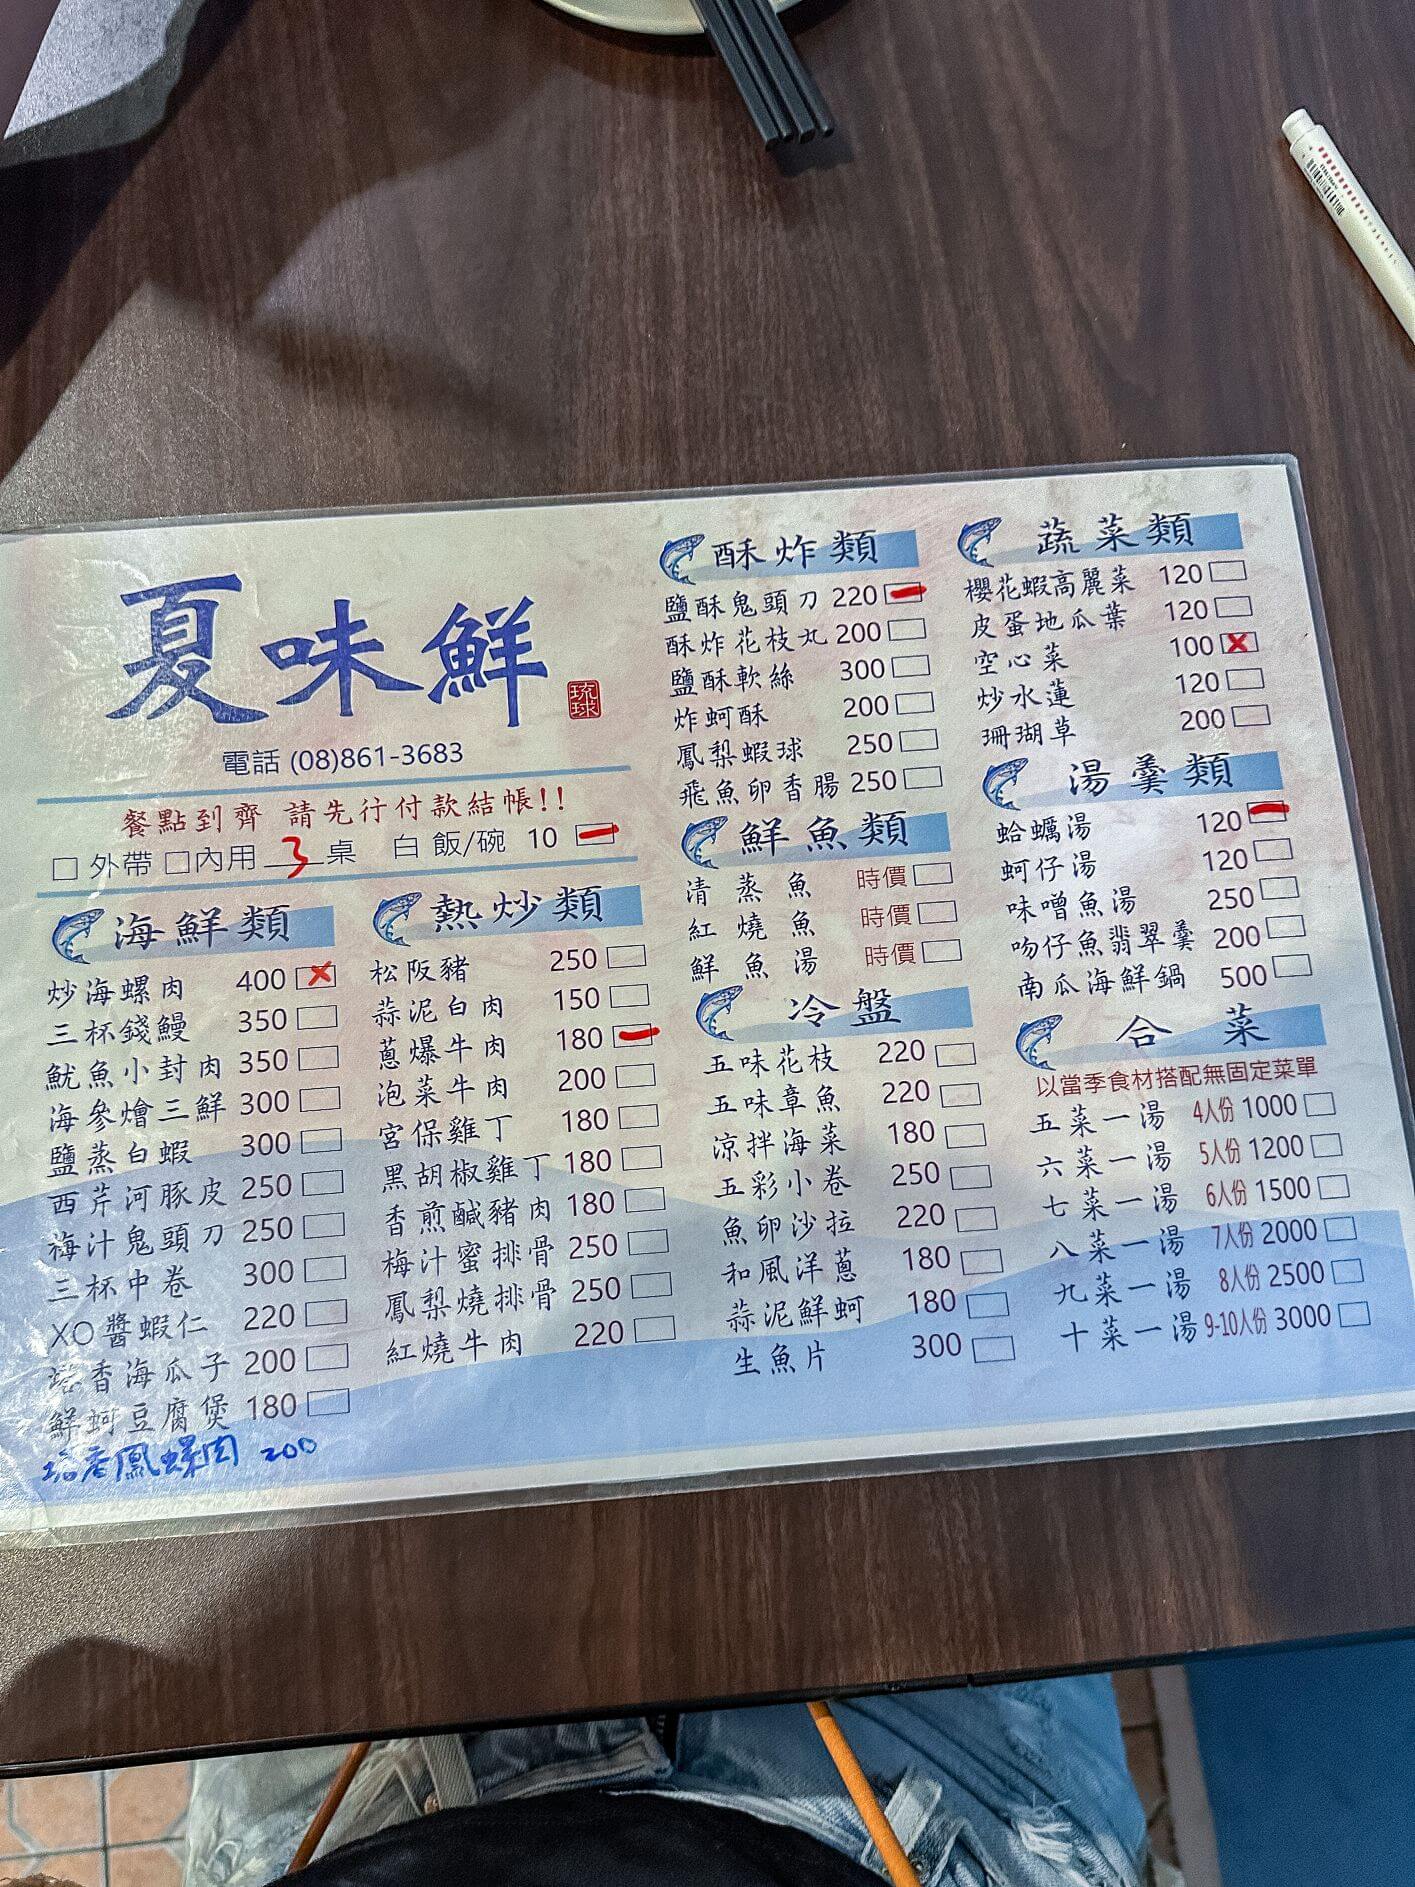 夏味鮮
琉球
電話 (08)861-3683
餐點到齊 請先行付款結帳!!
外帶 內用 3 桌 白飯/碗 10
海鮮類
炒海螺肉 400
三杯錢鰻 350
魷魚小封肉 350
海參燴三鮮 300
鹽蒸白蝦 300
西芹河豚皮 250
梅汁鬼頭刀 250
三杯中卷 300
XO醬蝦仁 220
塔香海瓜子 200
鮮蚵豆腐煲 180
鳳螺肉 200
熱炒類
松阪豬 250
蒜泥白肉 150
蔥爆牛肉 180
泡菜牛肉 200
宮保雞丁 180
黑胡椒雞丁 180
香煎鹹豬肉 180
梅汁蜜排骨 250
鳳梨燒排骨 250
紅燒牛肉 220
酥炸類
鹽酥鬼頭刀 220
酥炸花枝丸 200
鹽酥軟絲 300
炸蚵酥 200
鳳梨蝦球 250
飛魚卵香腸 250
鮮魚類
清蒸魚 時價
紅燒魚 時價
鮮魚湯 時價
冷盤
五味花枝 220
五味章魚 220
涼拌海菜 180
五彩小卷 250
魚卵沙拉 220
和風洋蔥 180
蒜泥鮮蚵 180
生魚片 300
蔬菜類
櫻花蝦高麗菜 120
皮蛋地瓜葉 120
空心菜 100
炒水蓮 120
珊瑚草 200
湯羹類
蛤蠣湯 120
蚵仔湯 120
味噌魚湯 250
吻仔魚翡翠羹 200
南瓜海鮮鍋 500
合菜
以當季食材搭配無固定菜單
五菜一湯 4人份 1000
六菜一湯 5人份 1200
七菜一湯 6人份 1500
八菜一湯 7人份 2000
九菜一湯 8人份 2500
十菜一湯 9-10人份 3000